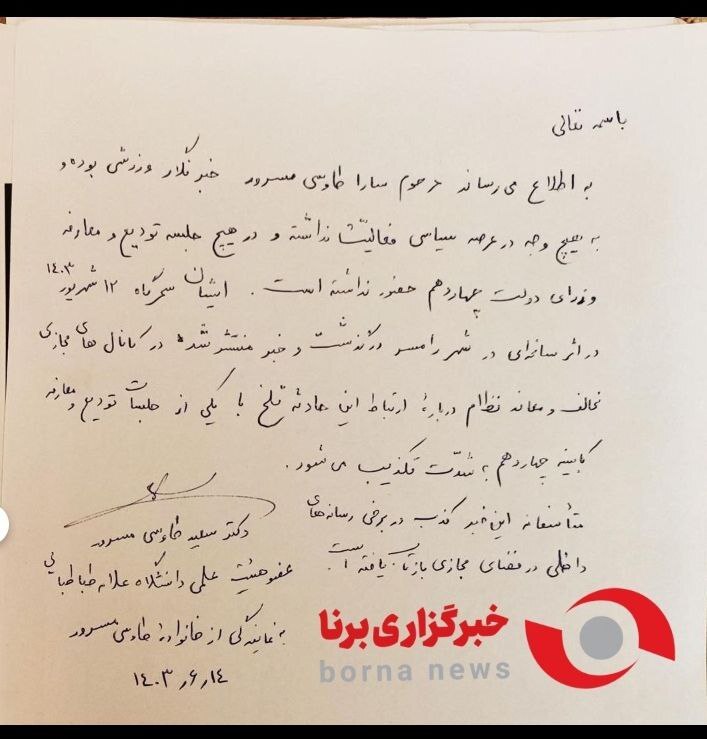 باسمه تعالی
به اطلاع می رساند مرحوم سارا طاوسی مسرور خبرنگار ورزشی بوده و
به هیچ وجه در عرصه سیاسی فعالیّت نداشته و در هیچ جلسه تودیع و معارفه
وزرای دولت چهاردهم حضور نداشته است. ایشان سحرگاه ۱۲ شهریور ۱۴۰۳
در اثر سانحه‌ای در شهر رامسر درگذشت و خبر منتشر شده در کانال های مجازی
مخالف و معاند نظام دربارهٔ ارتباط این حادثه تلخ با یکی از جلسات تودیع و معارفه
کابینه چهاردهم به شدّت تکذیب می شود.
متأسفانه این خبر کذب در برخی رسانه های
داخلی در فضای مجازی بازتاب یافته است.
دکتر سعید طاوسی مسرور
عضو هیئت علمی دانشگاه علامه طباطبائی
به نمایندگی از خانوادهٔ طاوسی مسرور
۱۴۰۳٫۶٫۱۴
خبرگزاری برنا
borna news